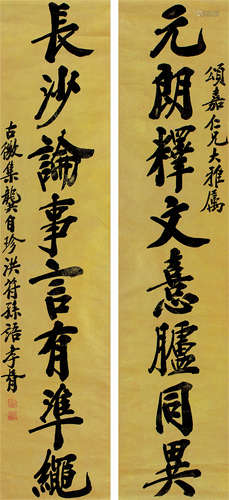 頌嘉仁兄大雅属
元朗釋文憙臚同異
長沙論事言有準繩
古微集龔自珍洪符孫語李胥